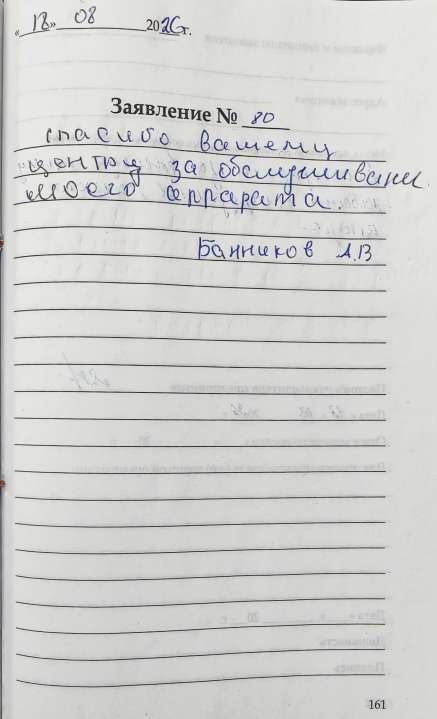 «18» 08 2026 г.
Заявление № 80
спасибо вашему
центру за обслуживани
моего аппарата.
Банников А.В
161